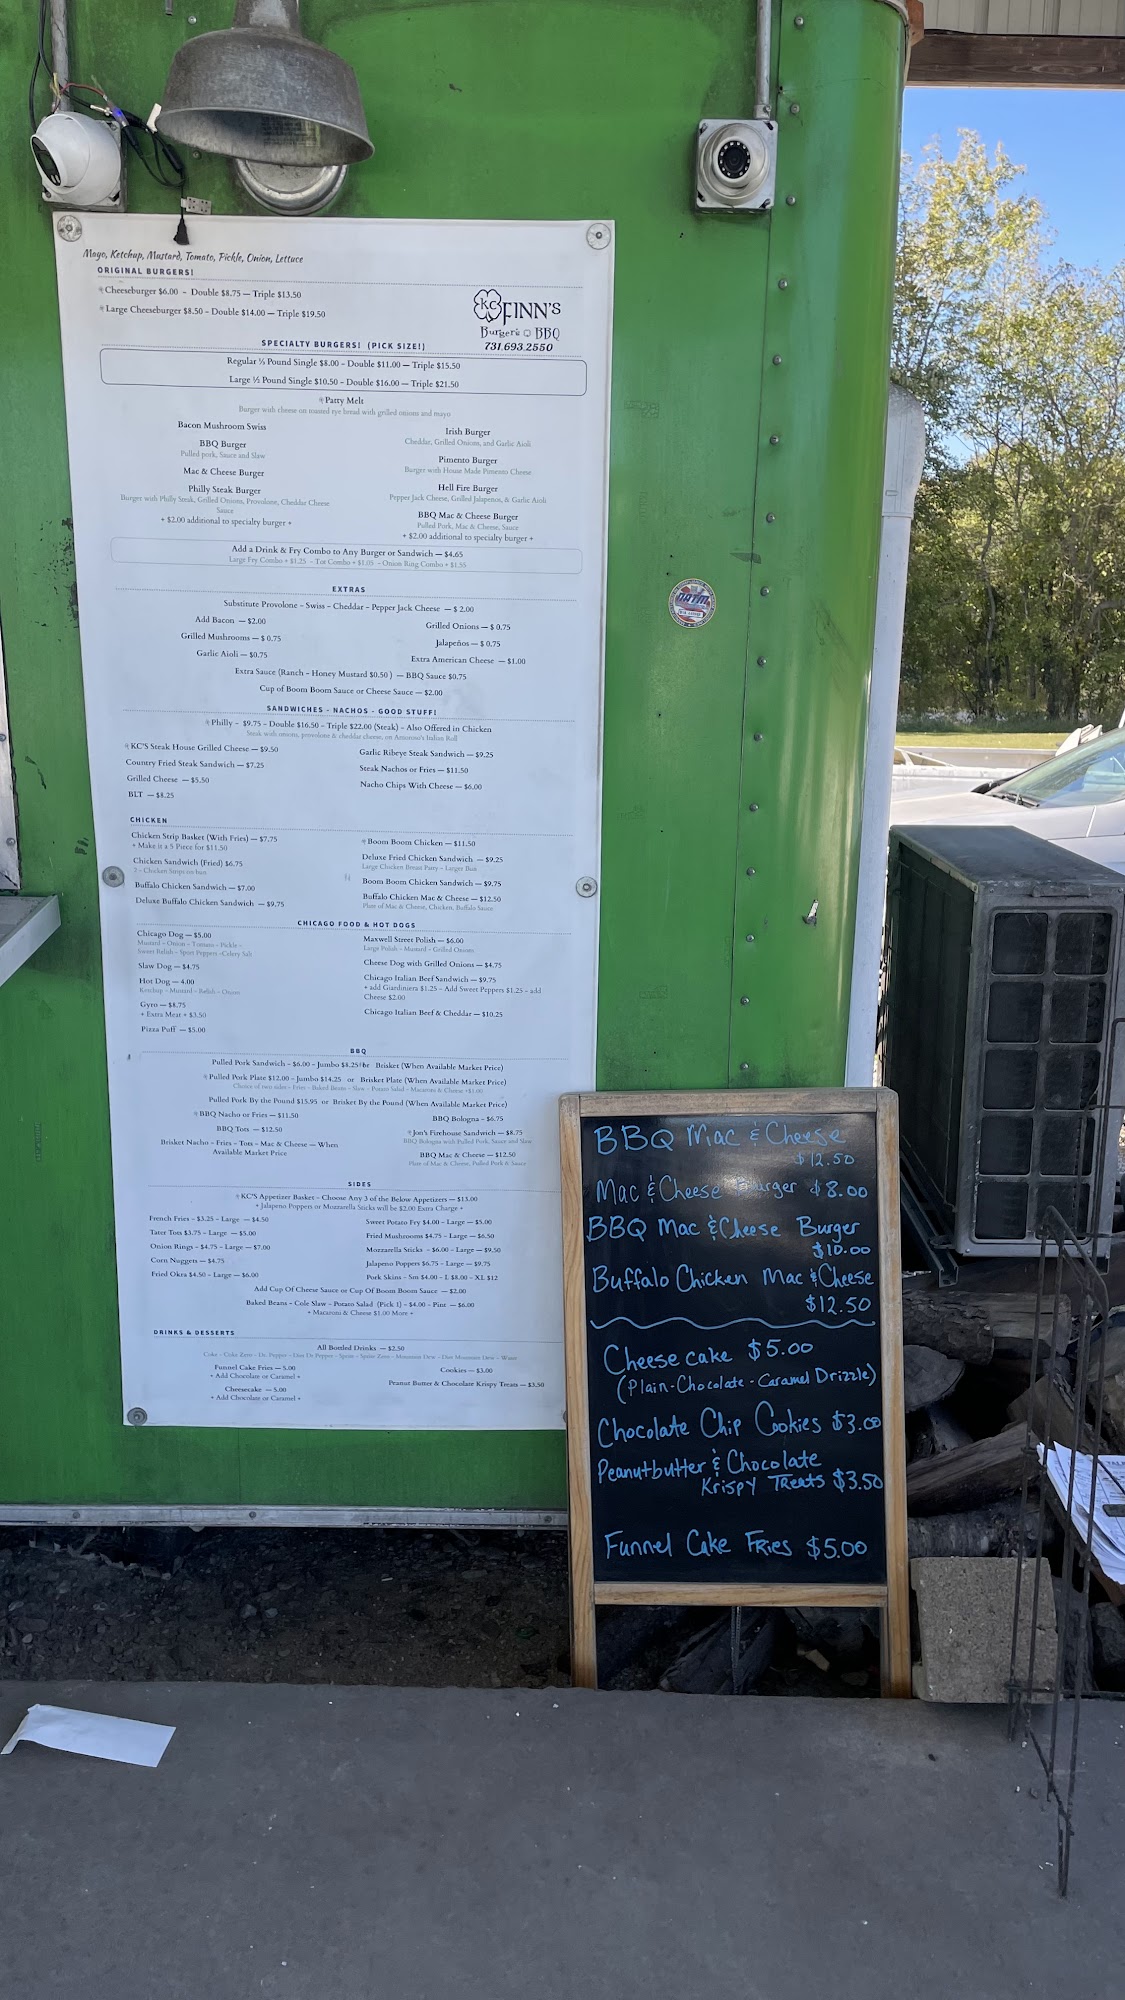 Mayo, Ketchup, Mustard, Tomato, Pickle, Onion, Lettuce
ORIGINAL BURGERS!
Cheeseburger $6.00 - Double $8.75 — Triple $13.50
Large Cheeseburger $8.50 - Double $14.00 — Triple $19.50
KC FINN'S
Burgers BBQ
731.693.2550
SPECIALTY BURGERS! (PICK SIZE!)
Regular ⅓ Pound Single $8.00 - Double $11.00 — Triple $15.50
Large ½ Pound Single $10.50 - Double $16.00 — Triple $21.50
Patty Melt
Burger with cheese on toasted rye bread with grilled onions and mayo
Bacon Mushroom Swiss
BBQ Burger
Pulled pork, Sauce and Slaw
Mac & Cheese Burger
Philly Steak Burger
Burger with Philly Steak, Grilled Onions, Provolone, Cheddar Cheese
Sauce
+ $2.00 additional to specialty burger +
Irish Burger
Cheddar, Grilled Onions, and Garlic Aioli
Pimento Burger
Burger with House Made Pimento Cheese
Hell Fire Burger
Pepper Jack Cheese, Grilled Jalapenos, & Garlic Aioli
BBQ Mac & Cheese Burger
Pulled Pork, Mac & Cheese, Sauce
+ $2.00 additional to specialty burger +
Add a Drink & Fry Combo to Any Burger or Sandwich — $4.65
Large Fry Combo + $1.25 - Tot Combo + $1.05 - Onion Ring Combo + $1.55
EXTRAS
Substitute Provolone - Swiss - Cheddar - Pepper Jack Cheese — $ 2.00
Add Bacon — $2.00
Grilled Mushrooms — $ 0.75
Garlic Aioli — $0.75
Grilled Onions — $ 0.75
Jalapeños — $ 0.75
Extra American Cheese — $1.00
Extra Sauce (Ranch - Honey Mustard $0.50 ) — BBQ Sauce $0.75
Cup of Boom Boom Sauce or Cheese Sauce — $2.00
SANDWICHES - NACHOS - GOOD STUFF!
Philly - $9.75 - Double $16.50 - Triple $22.00 (Steak) - Also Offered in Chicken
Steak with onions, provolone & cheddar cheese, on Italian Roll
KC'S Steak House Grilled Cheese — $9.50
Country Fried Steak Sandwich — $7.25
Grilled Cheese — $5.50
BLT — $8.25
Garlic Ribeye Steak Sandwich — $9.25
Steak Nachos or Fries — $11.50
Nacho Chips With Cheese — $6.00
CHICKEN
Chicken Strip Basket (With Fries) — $7.75
+ Make it a 5 Piece for $11.50
Chicken Sandwich (Fried) $6.75
2 - Chicken Strips on bun
Buffalo Chicken Sandwich — $7.00
Deluxe Buffalo Chicken Sandwich — $9.75
Boom Boom Chicken — $11.50
Deluxe Fried Chicken Sandwich — $9.25
Large Chicken Breast Patty - Larger Bun
Boom Boom Chicken Sandwich — $9.75
Buffalo Chicken Mac & Cheese — $12.50
Plate of Mac & Cheese, Chicken, Buffalo Sauce
CHICAGO FOOD & HOT DOGS
Chicago Dog — $5.00
Mustard - Onion - Tomato - Pickle -
Sweet Relish - Sport Peppers -Celery Salt
Slaw Dog — $4.75
Hot Dog — 4.00
Ketchup - Mustard - Relish - Onion
Gyro — $8.75
+ Extra Meat + $3.50
Pizza Puff — $5.00
Maxwell Street Polish — $6.00
Large Polish - Mustard - Grilled Onions
Cheese Dog with Grilled Onions — $4.75
Chicago Italian Beef Sandwich — $9.75
+ add Giardiniera $1.25 - Add Sweet Peppers $1.25 - add
Cheese $2.00
Chicago Italian Beef & Cheddar — $10.25
BBQ
Pulled Pork Sandwich - $6.00 - Jumbo $8.25 Brisket (When Available Market Price)
Pulled Pork Plate $12.00 - Jumbo $14.25 or Brisket Plate (When Available Market Price)
Choice of two sides - Fries - Baked Beans - Slaw - Potato Salad - Macaroni & Cheese +$1.00
Pulled Pork By the Pound $15.95 or Brisket By the Pound (When Available Market Price)
BBQ Nacho or Fries — $11.50
BBQ Tots — $12.50
Brisket Nacho - Fries - Tots - Mac & Cheese — When
Available Market Price
BBQ Bologna - $6.75
Jon's Firehouse Sandwich — $8.75
BBQ Bologna with Pulled Pork, Sauce and Slaw
BBQ Mac & Cheese — $12.50
Plate of Mac & Cheese, Pulled Pork & Sauce
SIDES
KC'S Appetizer Basket - Choose Any 3 of the Below Appetizers — $13.00
+ Jalapeno Poppers or Mozzarella Sticks will be $2.00 Extra Charge +
French Fries - $3.25 - Large — $4.50
Tater Tots $3.75 - Large — $5.00
Onion Rings - $4.75 - Large — $7.00
Corn Nuggets — $4.75
Fried Okra $4.50 - Large — $6.00
Sweet Potato Fry $4.00 - Large — $5.00
Fried Mushrooms $4.75 - Large — $6.50
Mozzarella Sticks - $6.00 - Large — $9.50
Jalapeno Poppers $6.75 - Large — $9.75
Pork Skins - Sm $4.00 - L $8.00 - XL $12
Add Cup Of Cheese Sauce or Cup Of Boom Boom Sauce — $2.00
Baked Beans - Cole Slaw - Potato Salad (Pick 1) - $4.00 - Pint — $6.00
+ Macaroni & Cheese $1.00 More +
DRINKS & DESSERTS
All Bottled Drinks — $2.50
Coke - Coke Zero - Dr. Pepper - Diet Dr Pepper - Sprite - Sprite Zero - Mountain Dew - Diet Mountain Dew - Water
Funnel Cake Fries — 5.00
+ Add Chocolate or Caramel +
Cheesecake — 5.00
+ Add Chocolate or Caramel +
Cookies — $3.00
Peanut Butter & Chocolate Krispy Treats — $3.50
BBQ Mac & Cheese
$12.50
Mac & Cheese Burger $8.00
BBQ Mac & Cheese Burger
$10.00
Buffalo Chicken Mac & Cheese
$12.50
Cheesecake $5.00
(Plain-Chocolate-Caramel Drizzle)
Chocolate Chip Cookies $3.00
Peanutbutter & Chocolate
Krispy Treats $3.50
Funnel Cake Fries $5.00